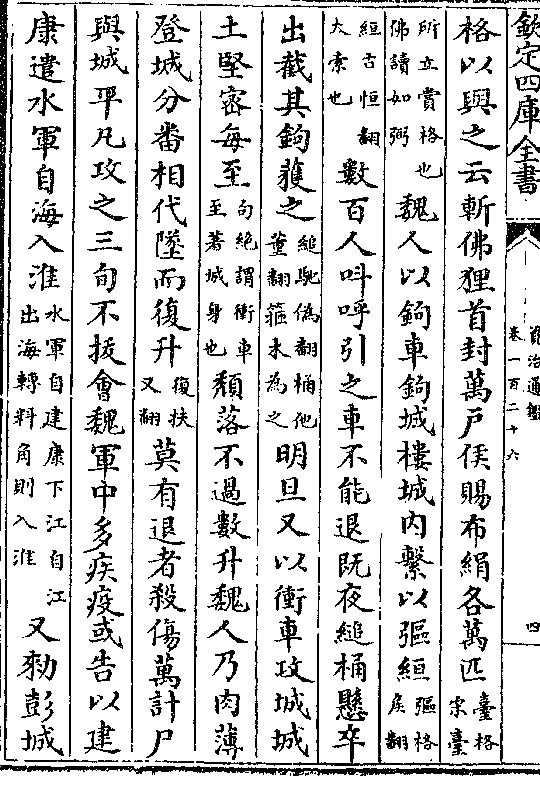 欽定四庫全書
資治通鑑
卷一百二十六
四
格以與之云斬佛狸首封萬戸侯賜布絹各萬匹臺格宋臺
所立賞格也佛讀如弼魏人以鉤車鉤城樓城内繫以彄絙彄格侯翻
絙古恒翻大索也數百人呌呼引之車不能退既夜縋桶懸卒
出截其鉤獲之縋馳偽翻桶他董翻箍木為之明旦又以衝車攻城城
土堅密每至句絶謂衝車至著城身也頽落不過數升魏人乃肉薄
登城分番相代墜而復升復扶又翻莫有退者殺傷萬計尸
與城平凡攻之三旬不拔會魏軍中多疾疫或告以建
康遣水軍自海入淮水軍自建康下江自江出海轉料角則入淮又勑彭城